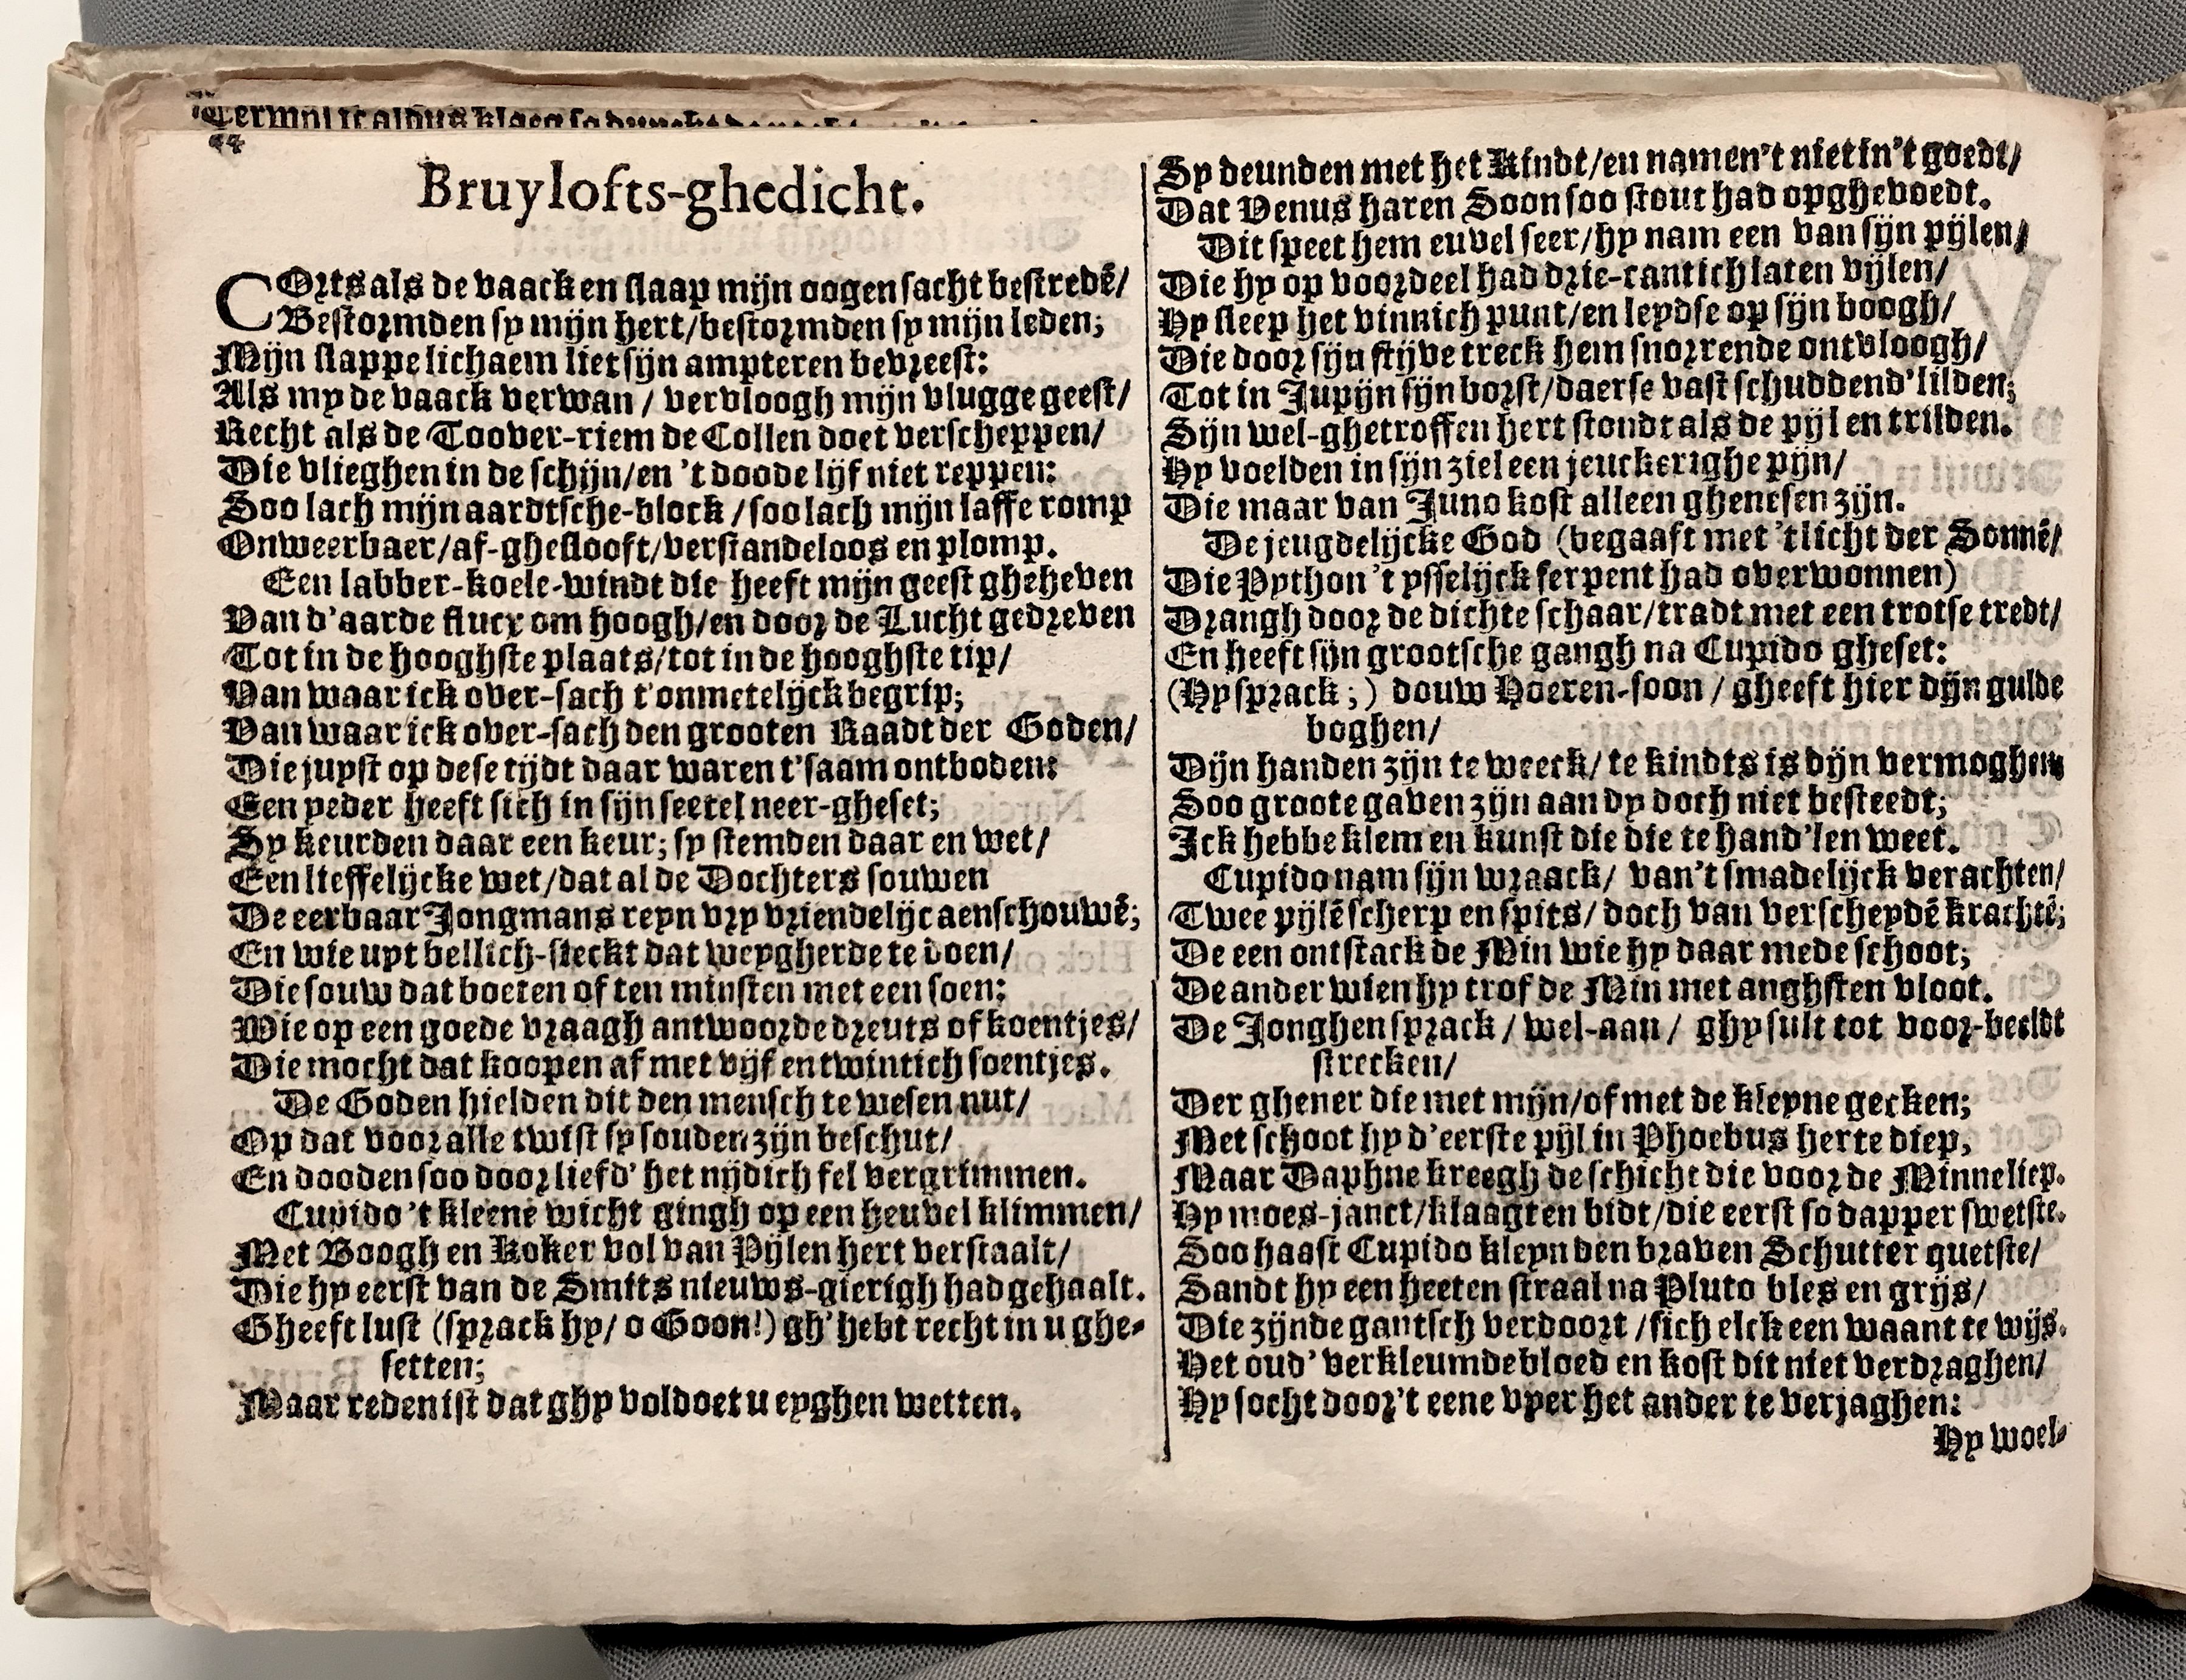 44
Bruylofts-ghedicht.
COrts als de vaack en slaap mijn oogen sacht bestredē/
Bestormden sy mijn hert/bestormden sy mijn leden;
Mijn slappe lichaem liet sijn ampteren bevreest:
Als my de vaack verwan / vervloogh mijn vlugge geest/
Recht als de Toover-riem de Collen doet verscheppen/
Die vlieghen in de schijn/en 't doode lijf niet reppen:
Soo lach mijn aardtsche-block / soo lach mijn laffe romp
Onweerbaer/af-ghesлooft/verstandeloos en plomp.
Een labber-koele-windt die heeft mijn geest gheheven
Van d'aarde flucx om hoogh/en door de Lucht gedreven
Tot in de hooghste plaats/tot in de hooghste tip/
Van waar ick over-sach t'onmetelijck begrip;
Van waar ick over-sach den grooten Raadt der Goden/
Die juyst op dese tijdt daar waren t'saam ontboden:
Een yeder heeft sich in sijn seetel neer-gheset;
Sy keurden daar een keur; sy stemden daar en wet/
Een lieffelijcke wet/dat al de Dochters souwen
De eerbaar Jongmans reyn vry vriendelijc aenschouwē;
En wie uyt bellich-steckt dat weygherde te doen/
Die souw dat boeten of ten minsten met een soen:
Wie op een goede vraagh antwoorde dreuts of koentjes/
Die mocht dat koopen af met vijf en twintich soentjes.
De Goden hielden dit den mensch te wesen nut/
Op dat voor alle twist sy souden zijn beschut/
En dooden soo door liefd' het nijdich fel vergrimmen.
Cupido 't kleene wicht gingh op een heuvel klimmen/
Met Boogh en Koker vol van Pijlen hert verstaalt/
Die hy eerst van de Smits nieuws-gierigh had gehaalt.
Gheeft lust (sprack hy/ o Goon!) gh' hebt recht in u ghe-
setten;
Maar reden ist dat ghy voldoet u eyghen wetten.
Sy deunden met het Kindt/en namen't niet in't goedt/
Dat Venus haren Soon soo stout had opghevoedt.
Dit speet hem euvel seer/hy nam een van sijn pijlen/
Die hy op voordeel had drie-cantich laten vijlen/
Hy sleep het vinnich punt/en leydse op sijn boogh/
Die door sijn stijve treck hem snorrende ontvloogh/
Tot in Jupijn sijn borst/daerse vast schuddend' lilden;
Sijn wel-ghetroffen hert stondt als de pijl en trilden.
Hy voelden in sijn ziel een jeuckerighe pijn/
Die maar van Juno kost alleen ghenesen zijn.
De jeugdelijcke God (begaaft met 't licht der Sonnē/
Die Python 't ysselijck serpent had overwonnen)
Drangh door de dichte schaar/tradt met een trotse tredt/
En heeft sijn grootsche gangh na Cupido gheset:
(Hy sprack;) douw Hoeren-soon / gheeft hier dijn gulde
boghen/
Dijn handen zijn te weeck/ te kindts is dijn vermoghen
Soo groote gaven zijn aan dy doch niet besteedt;
Ick hebbe klem en kunst die die te hand'len weet.
Cupido nam sijn wraack/ van't smadelijck verachten/
Twee pijlē scherp en spits/ doch van verscheydē krachtē;
De een ontstack de Min wie hy daar mede schoot;
De ander wien hy trof de Min met anghsten vloot.
De Jonghen sprack / wel-aan / ghy sult tot voor-beeldt
strecken/
Der ghener die met mijn/of met de kleyne gecken;
Met schoot hy d'eerste pijl in Phoebus herte diep,
Maar Daphne kreegh de schicht die voor de Minne liep.
Hy moes-janct/klaagt en bidt/die eerst so dapper swetste.
Soo haast Cupido kleyn den braven Schutter quetste/
Sandt hy een heeten straal na Pluto bles en grijs/
Die zijnde gantsch verdoort /sich elck een waant te wijs.
Het oud' verkleumde bloed en kost dit niet verdraghen/
Hy socht door't eene vyer het ander te verjaghen:
Hy woel-